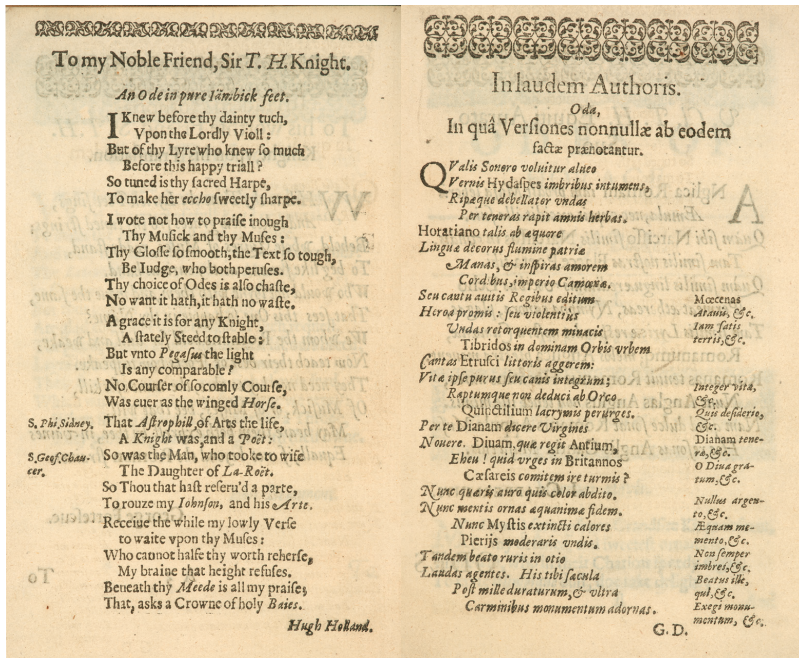 To my Noble Friend, Sir T. H. Knight.
An Ode in pure Iãmbick feet.
I Knew before thy dainty tuch,
Vpon the Lordly Violl:
But of thy Lyre who knew so much
Before this happy triall?
So tuned is thy sacred Harpe,
To make her eccho sweetly sharpe.
I wote not how to praise inough
Thy Musick and thy Muses:
Thy Glosse so smooth, the Text so tough,
Be Iudge, who both peruses.
Thy choice of Odes is also chaste,
No want it hath, it hath no waste.
A grace it is for any Knight,
A stately Steed to stable:
But vnto Pegasus the light
Is any comparable?
No Courser of so comly Course,
Was euer as the winged Horse.
S. Phi. Sidney. That Astrophill, of Arts the life,
A Knight was, and a Poët:
S. Geof. Chau-cer. So was the Man, who tooke to wife
The Daughter of La-Roët.
So Thou that hast reseru'd a parte,
To rouze my Iohnson, and his Arte.
Receiue the while my lowly Verse
to waite vpon thy Muses:
Who cannot halfe thy worth reherse,
My braine that height refuses.
Beneath thy Meede is all my praise,
That, asks a Crowne of holy Baies.
Hugh Holland.
In laudem Authoris.
Oda,
In quâ Versiones nonnullæ ab eodem
factæ prænotantur.
QValis Sonoro voluitur alueo
Vernis Hydaspes imbribus intumens,
Ripæque debellator vndas
Per teneras rapit amnis herbas.
Horatiano talis ab æquore
Linguæ decorus flumine patriæ
Manas, & inspiras amorem
Cordibus, imperio Camœnæ.
Seu cantu auitis Regibus editum Mœcenas
Heroa promis: seu violentiùs Atauis, &c.
Vndas retorquentem minacis Iam satis
Tibridos in dominam Orbis vrbem terris, &c.
Cantas Etrusci littoris aggerem:
Vitæ ipse purus seu canis integrum; Integer vitæ,
Raptumque non deduci ab Orco &c.
Quinctilium lacrymis perurges. Quis desiderio,
Per te Dianam dicere Virgines &c.
Nouere. Diuam, quæ regit Antium, Dianam tene-
Eheu! quid vrges in Britannos ræ, &c.
Cæsareis comitem ire turmis? O Diua gra-
tum, &c.
Nunc quæris auro quis color abdito. Nullus argen-
Nunc mentis ornas æquanimæ fidem. to, &c.
Nunc Mystis extincti calores Æquam me-
Pierijs moderaris vndis. mento, &c.
Tandem beato ruris in otio Non semper
Laudas agentes. His tibi sæcula imbres, &c.
Post mille duraturum, & vltra Beatus ille,
qui, &c.
Carminibus monumentum adornas. Exegi monu-
mentum, &c.
G. D.